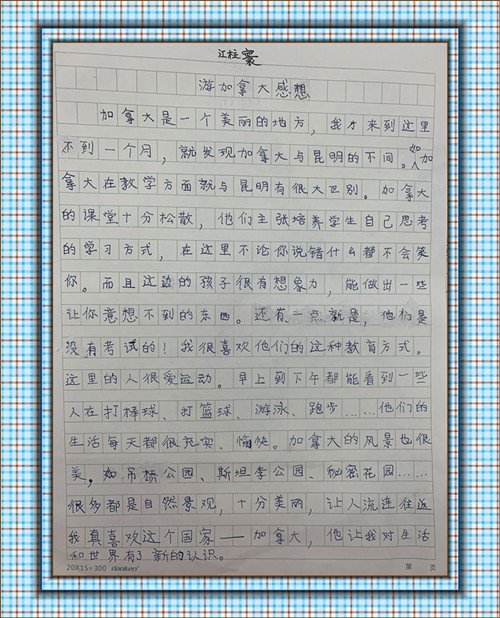 江柱寰
游加拿大感想
加拿大是一个美丽的地方，我才来到这里
不到一个月，就发现加拿大与昆明的不同。如加
拿大在教学方面就与昆明有很大区别。加拿大
的课堂十分松散，他们主张培养学生自己思考
的学习方式，在这里不论你说错什么都不会笑
你。而且这边的孩子很有想象力，能做出一些
让你意想不到的东西。还有一点就是，他们是
没有考试的！我很喜欢他们的这种教育方式。
这里的人很爱运动。早上到下午都能看到一些
人在打棒球、打篮球、游泳、跑步……他们的
生活每天都很充实、愉快。加拿大的风景也很
美，如吊桥公园、斯坦李公园、秘密花园……
很多都是自然景观，十分美丽，让人流连往返
我真喜欢这个国家——加拿大，他让我对生活
和世界有了新的认识。
20X15=300
第 页